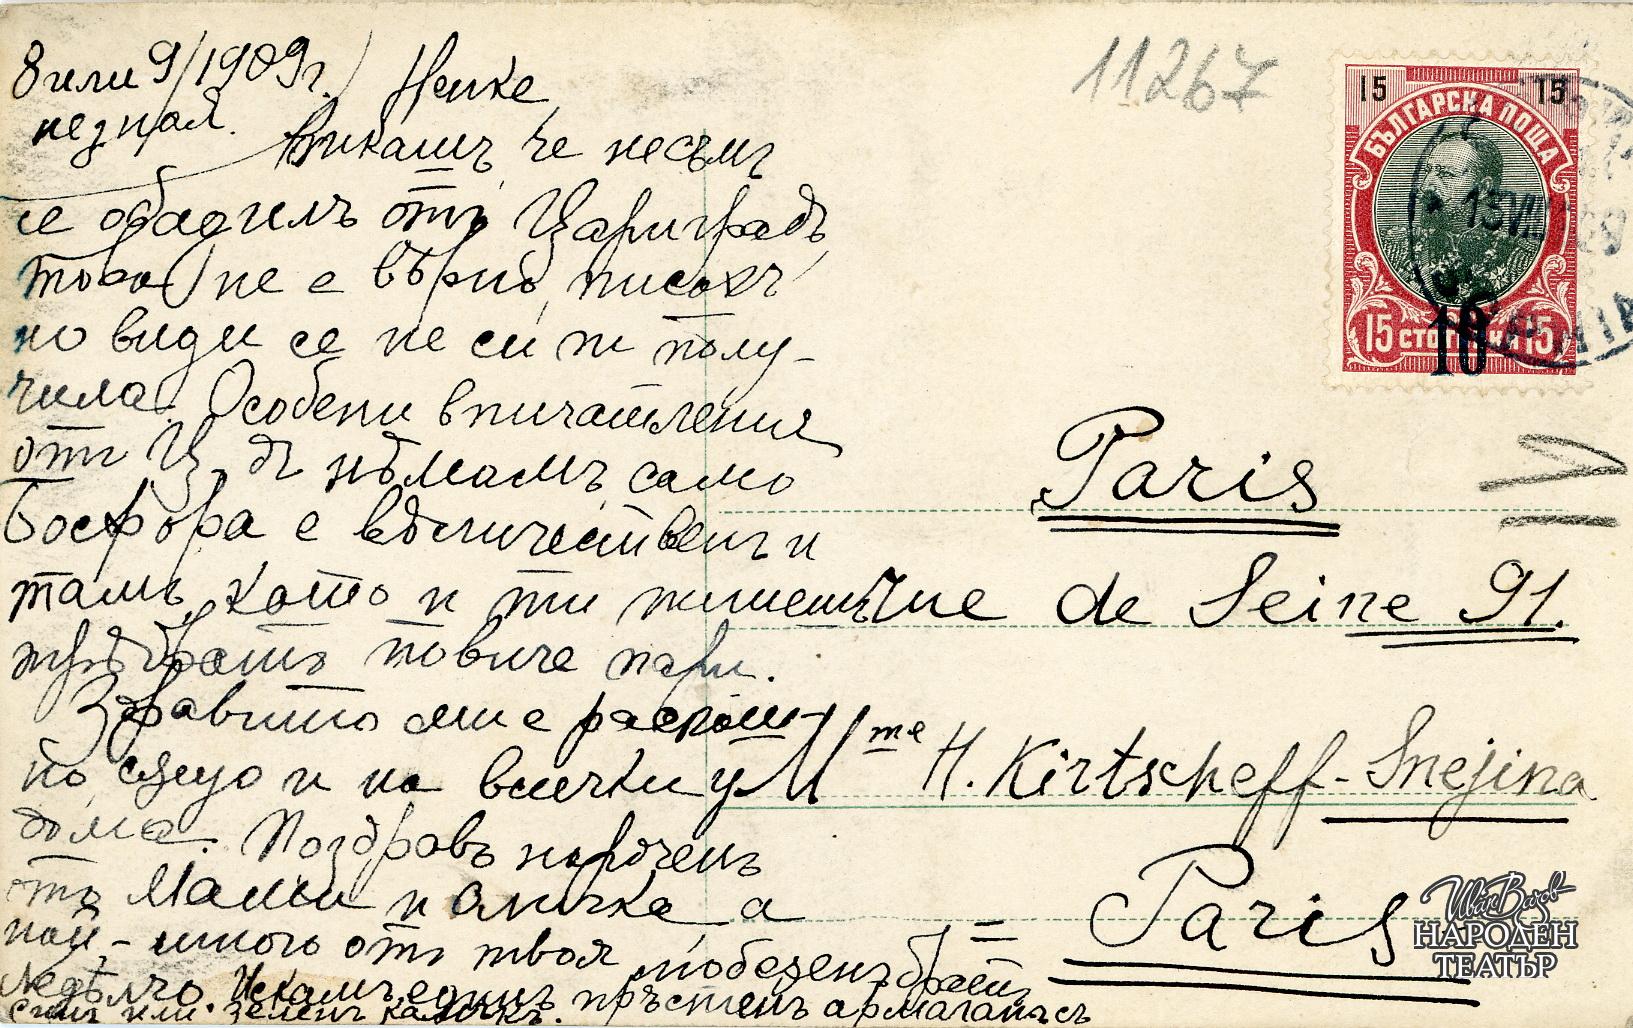 8 или 9/1909 г.
незная.
Ненке,
Викашъ че несъмъ
се обадилъ отъ Цариградъ,
това не е вѣрно, писахъ
но види се не си ги полу-
чила. Особени впичатления
отъ Ц. дъ нѣмамъ, само
Босфора е величественъ и
тамъ, като и ти пишешъ,
трѣбватъ повиче пари.
Здравито ми е разкош-
но също и на всички у
дома. Поздравъ нарочень
отъ Мама и Оличка а
най-много отъ твоя любезенъ братъ
Недѣлчо. Искамъ единъ пръстенъ армаганъ съ
синъ или зеленъ камъкъ.
11267
15 15
БЪЛГАРСКА ПОЩА
13 VIII 09
10
15 СТОТИНКИ 15
IV
Paris
rue de Seine 91.
Mme H. Kirtscheff-Snejina
= Paris
Иван Вазов
НАРОДЕН
ТЕАТЪР